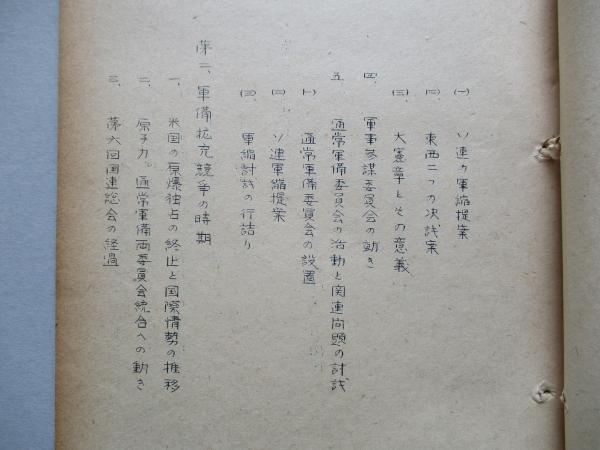 (一) ソ連の軍縮提案
(二) 東西二つの決議案
(三) 大憲章とその意義
四、 軍事参謀委員会の動き
五、 通常軍備委員会の活動と関連問題の討議
(一) 通常軍備委員会の設置
(二) ソ連軍縮提案
(三) 軍縮討議の行詰り
第二、軍備拡充競争の時期
一、 米国の原爆独占の終止と国際情勢の推移
二、 原子力、通常軍備両委員会統合への動き
三、 第六回国連総会の経過